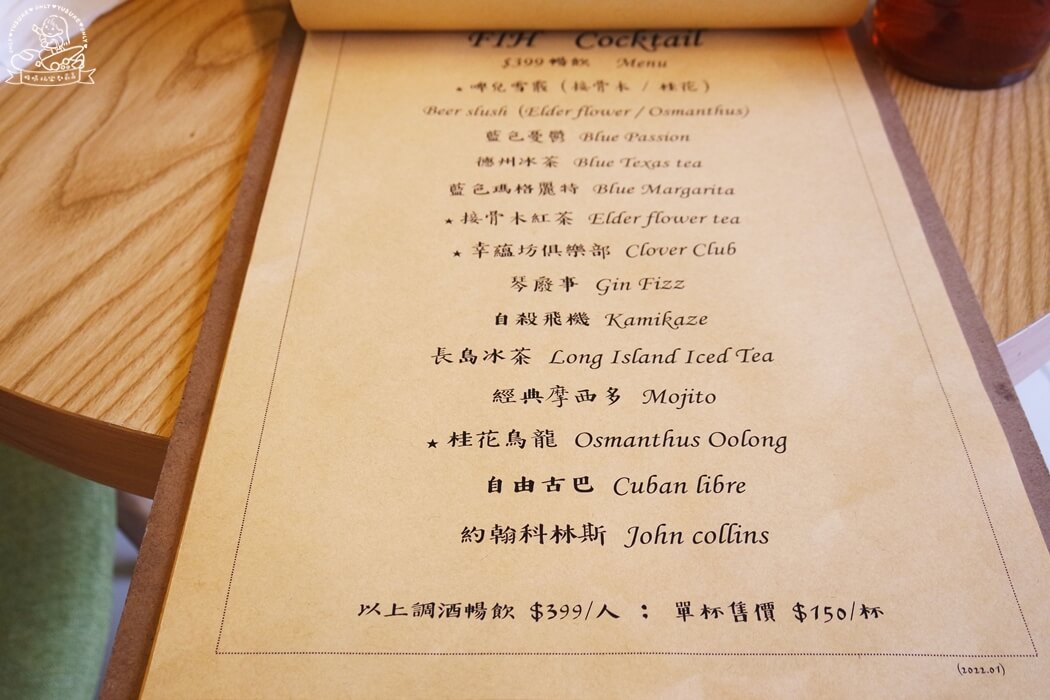 FIH Cocktail
$399暢飲 Menu
★啤兒雪霰（接骨木 / 桂花）
Beer slush (Elder flower / Osmanthus)
藍色憂鬱 Blue Passion
德州冰茶 Blue Texas tea
藍色瑪格麗特 Blue Margarita
★接骨木紅茶 Elder flower tea
★幸蘊坊俱樂部 Clover Club
琴廢事 Gin Fizz
自殺飛機 Kamikaze
長島冰茶 Long Island Iced Tea
經典摩西多 Mojito
★桂花烏龍 Osmanthus Oolong
自由古巴 Cuban libre
約翰科林斯 John collins
以上調酒暢飲 $399/人 ； 單杯售價 $150/杯
(2022.01)